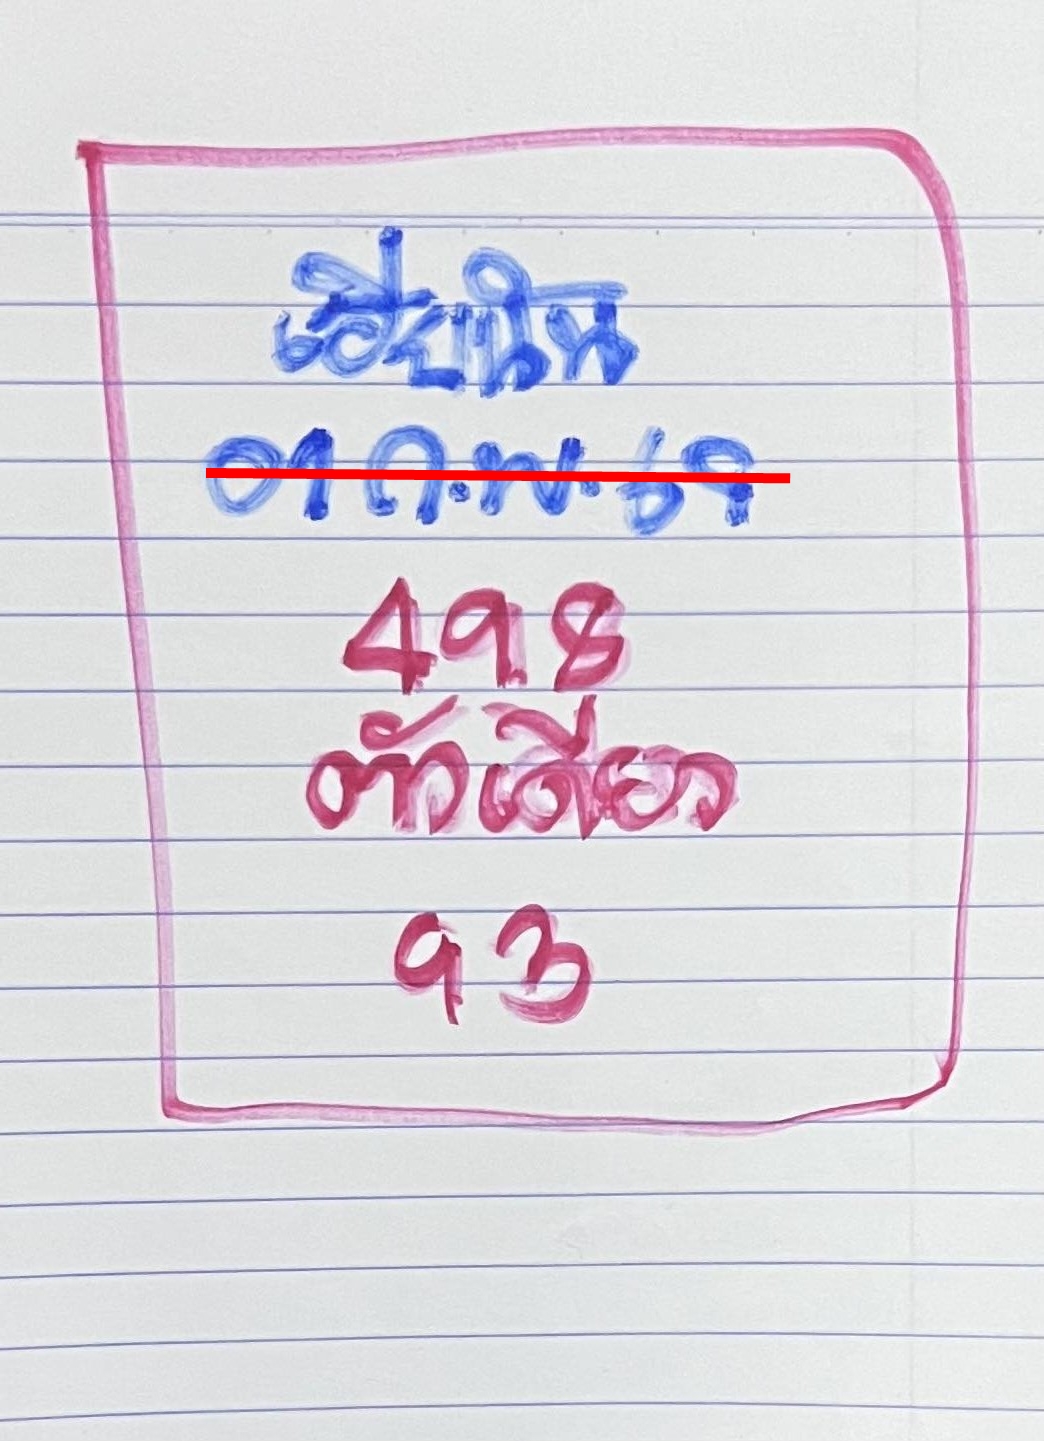 เฮียนิน
01 ก.พ. 69
498
ตัวเดียว
93